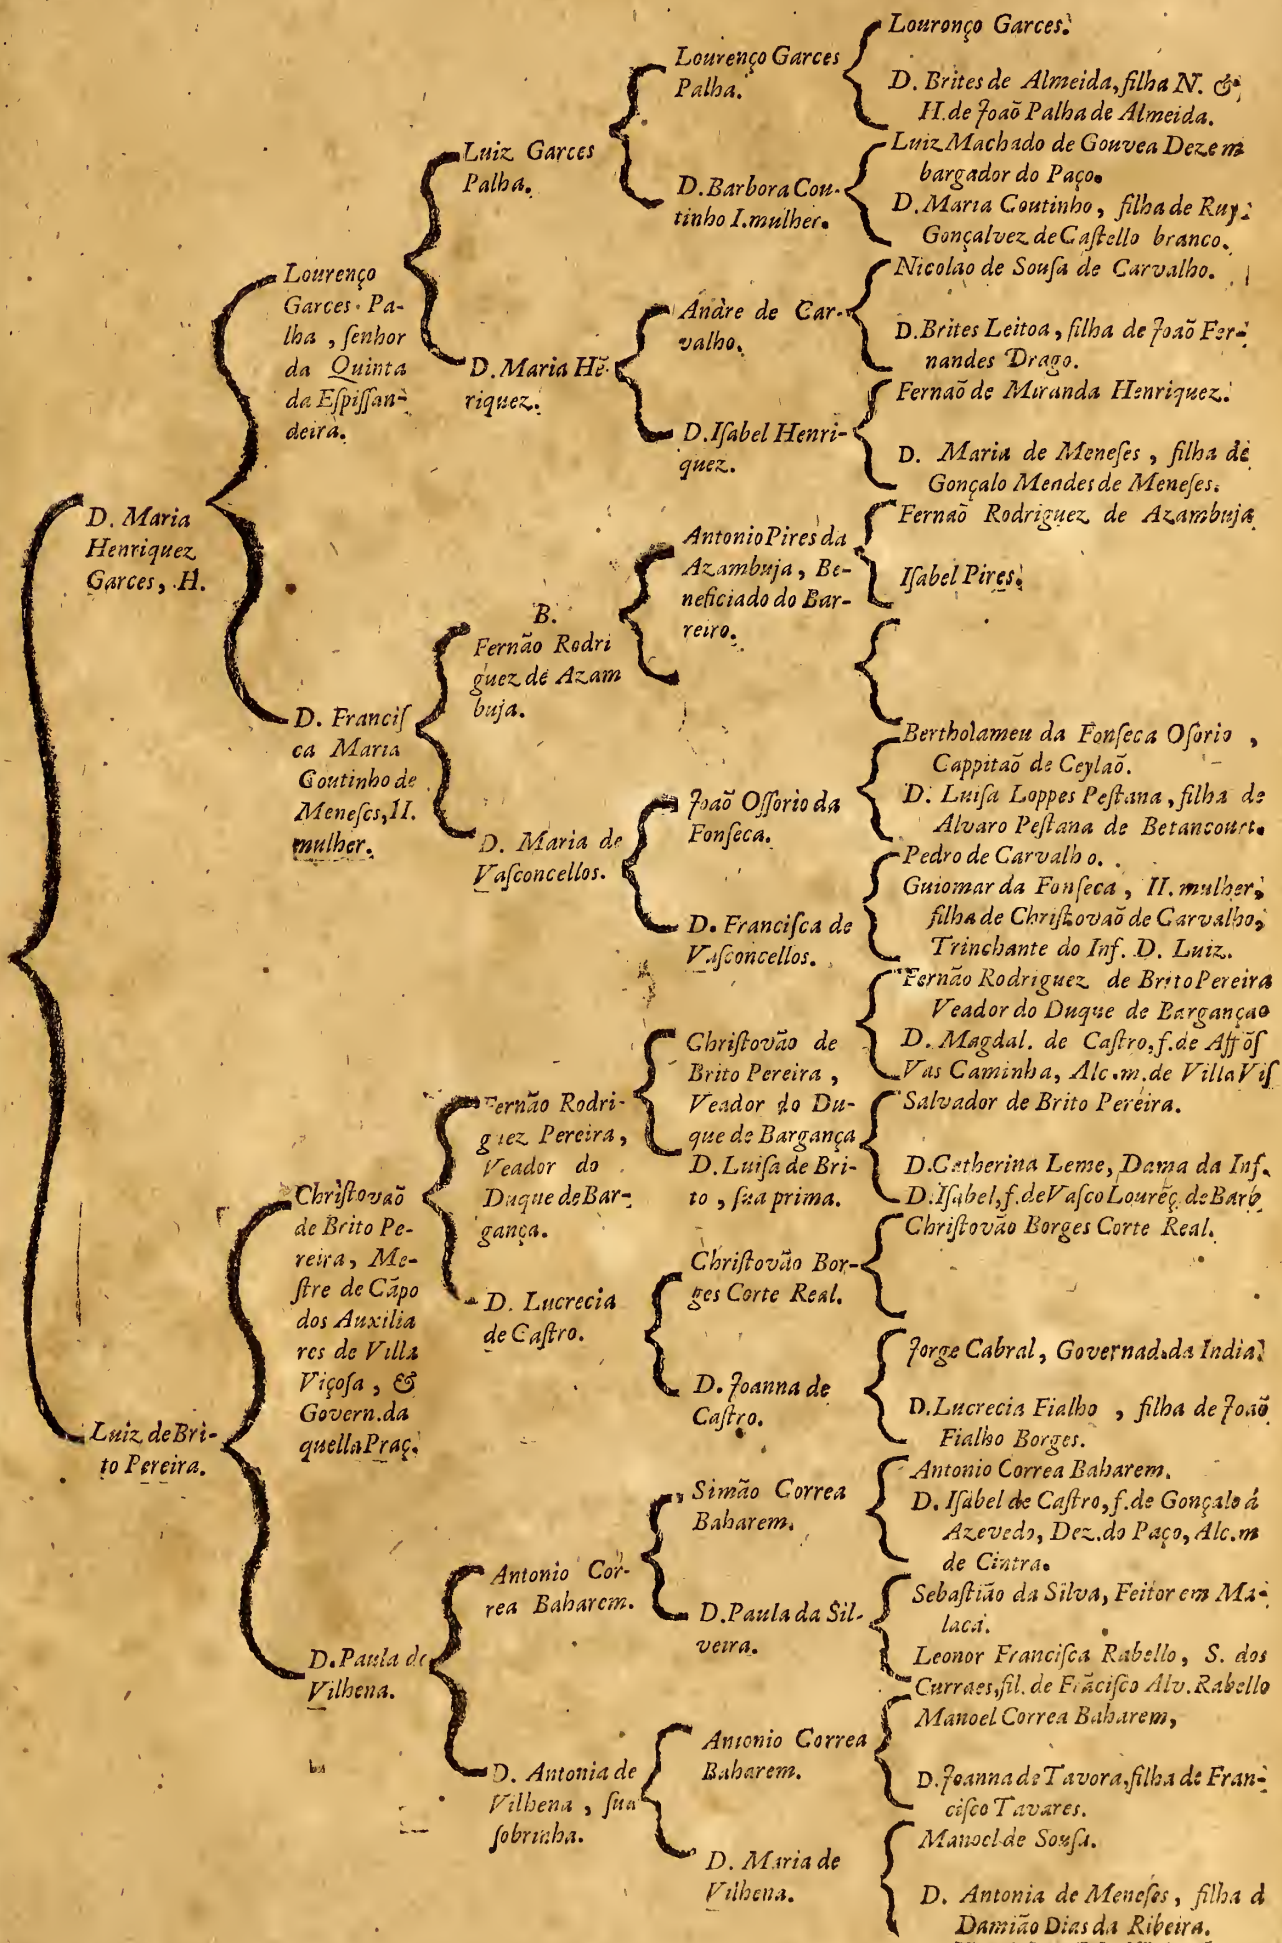 D. Maria
Henriquez
Garces, H.
Luiz de Bri-
to Pereira.
Lourenço
Garces Pa-
lha, ſenhor
da Quinta
da Eſpiſſan-
deira.
D. Franciſ
ca Maria
Coutinho de
Meneſes, II.
mulher.
Chriſtovaõ
de Brito Pe-
reira, Me-
ſtre de Cãpo
dos Auxilia
res de Villa
Viçoſa, &
Govern. da
quella Praç.
D. Paula de
Vilhena.
Luiz Garces
Palha.
D. Maria Hẽ-
riquez.
B.
Fernão Rodri
guez de Azam
buja.
D. Maria de
Vaſconcellos.
Fernão Rodri-
guez Pereira,
Veador do
Duque de Bar-
gança.
D. Lucrecia
de Caſtro.
Antonio Cor-
rea Baharem.
D. Antonia de
Vilhena, ſua
ſobrinha.
Lourenço Garces
Palha.
D. Barbora Cou-
tinho I. mulher.
Andre de Car-
valho.
D. Iſabel Henri-
quez.
Antonio Pires da
Azambuja, Be-
neficiado do Bar-
reiro.
Joaõ Oſſorio da
Fonſeca.
D. Franciſca de
Vaſconcellos.
Chriſtovão de
Brito Pereira,
Veador do Du-
que de Bargança
D. Luiſa de Bri-
to, ſua prima.
Chriſtovão Bor-
ges Corte Real.
D. Joanna de
Caſtro.
Simão Correa
Baharem.
D. Paula da Sil-
veira.
Antonio Correa
Baharem.
D. Maria de
Vilhena.
Louronço Garces.
D. Brites de Almeida, filha N. &
H. de Joaõ Palha de Almeida.
Luiz Machado de Gouvea Dezem
bargador do Paço.
D. Maria Coutinho, filha de Ruy
Gonçalvez de Caſtello branco.
Nicolao de Souſa de Carvalho.
D. Brites Leitoa, filha de Joaõ Fer-
nandes Drago.
Fernaõ de Miranda Henriquez.
D. Maria de Meneſes, filha de
Gonçalo Mendes de Meneſes.
Fernaõ Rodriguez de Azambuja
Iſabel Pires.
Bertholameu da Fonſeca Oſorio,
Cappitaõ de Ceylaõ.
D. Luiſa Loppes Peſtana, filha de
Alvaro Peſtana de Betancourt.
Pedro de Carvalho.
Guiomar da Fonſeca, II. mulher,
filha de Chriſtovaõ de Carvalho,
Trinchante do Inf. D. Luiz.
Fernão Rodriguez de Brito Pereira
Veador do Duque de Bargança
D. Magdal. de Caſtro, f. de Affõſ
Vas Caminha, Alc. m. de Villa Viſ
Salvador de Brito Pereira.
D. Catherina Leme, Dama da Inf.
D. Iſabel, f. de Vaſco Loureç. de Barb
Chriſtovão Borges Corte Real.
Jorge Cabral, Governad. da India.
D. Lucrecia Fialho, filha de Joaõ
Fialho Borges.
Antonio Correa Baharem.
D. Iſabel de Caſtro, f. de Gonçalo á
Azevedo, Dez. do Paço, Alc. m
de Cintra.
Sebaſtião da Silva, Feitor em Ma-
laca.
Leonor Franciſca Rabello, S. dos
Curraes, fil. de Frãciſco Alv. Rabello
Manoel Correa Baharem,
D. Joanna de Tavora, filha de Fran-
ciſco Tavares.
Manoel de Souſa.
D. Antonia de Meneſes, filha d
Damião Dias da Ribeira.